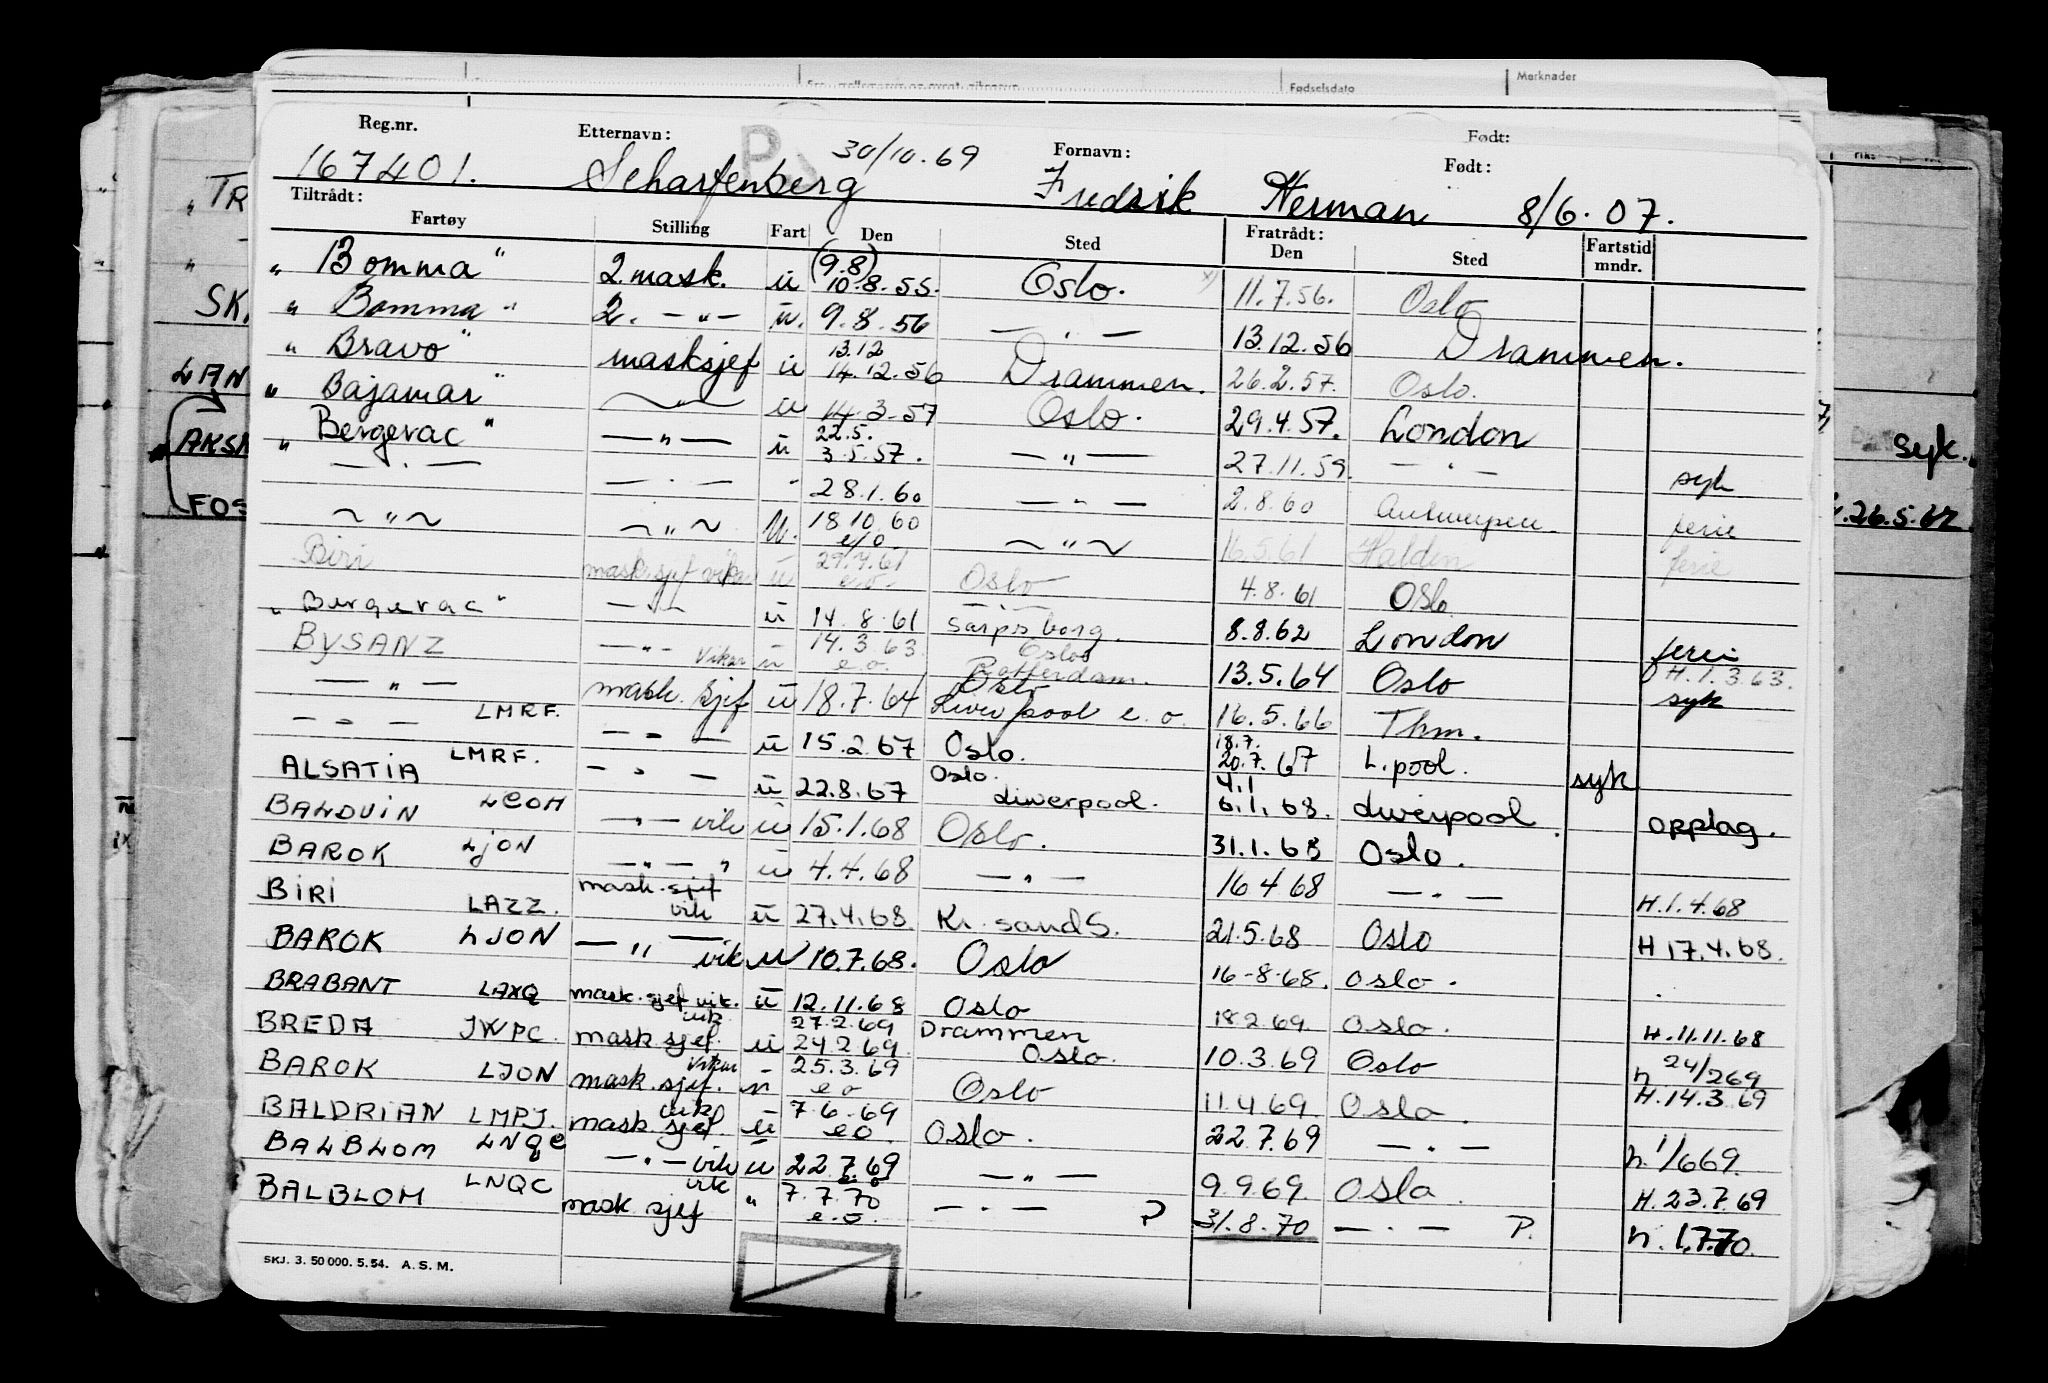 Merknader
Fødselsdato
Reg.nr. Etternavn: 30/10.69 Fornavn: Født:
Født:
167401. Scharfenberg Fredrik Herman 8/6.07.
Tiltrådt: Fratrådt:
Fartøy Stilling Fart Den Sted Den Sted Fartstid mndr.
"Bomma" 2.mask. u (9.8) 10.8.55. Oslo. 11.7.56. Oslo
"Bomma" 2. —"— u. 9.8.56 — " — 13.12.56 Drammen.
"Bravo" masksjef u 13.12 14.12.56 Drammen. 26.2.57. Oslo.
"Bajamar" —"— u 14.3.57 Oslo. 29.4.57. London
"Bergerac" —"— u 22.5. 3.5.57. —"— 27.11.59. — " — syk
— " — — " — " 28.1.60 — " — 2.8.60 Antwerpen. ferie
~ " ~ ~ " ~ u. 18.10.60 e/o ~ " ~ 16.5.61 Halden ferie
Biri mask.sjef vikar u 29.7.61 e.o. Oslo 4.8.61 Oslo
"Bergerac" — " — u 14.8.61 Sarpsborg. 8.8.62 London ferie
BYSANZ — " — vikar u 14.3.63 e.o. Oslo Rotterdam. 13.5.64 Oslo H.1.3.63. syk
— " — mask. sjef u 18.7.64 Oslo Liverpool e.o. 16.5.66 Thm.
— " — LMRF. — " — u 15.2.67 Oslo. 18.7. 20.7.67 L.pool. syk
ALSATIA LMRF. — " — u 22.8.67 Oslo. Liverpool. 4.1 6.1.68. Liverpool. opplag.
BALDUIN LCOH — " — vik u 15.1.68 Oslo. 31.1.68 Oslo.
BAROK LJON — " — " u 4.4.68 — " — 16.4.68 — " — H.1.4.68
BIRI LAZZ. mask.sjef vik u 27.4.68. Kr.sandS. 21.5.68 Oslo H 17.4.68.
BAROK LJON — " — vik u 10.7.68. Oslo 16-8-68. Oslo.
BRABANT LAXQ mask.sjef vik. u 12.11.68 Oslo 18.2.69. Oslo. H.11.11.68
BREDA JWPC. mask sjef. vik u 27.2.69 24.2.69. Drammen Oslo. 10.3.69 Oslo h 24/2 69
BAROK LJON mask.sjef. vikar u 25.3.69 e o Oslo 11.4.69 Oslo. H.14.3.69
BALDRIAN LMPJ. mask sjef. vik u 7.6.69 e o Oslo. 22.7.69 — " — h. 1/6 69.
BALBLOM LNQC — " — vik u 22.7.69 — " — 9.9.69. Oslo. H.23.7.69
BALBLOM LNQC mask sjef vik " 7.7.70 e.o. — " — P 31.8.70 — " — P. h. 1.7.70.
SKJ. 3. 50 000. 5. 54. A. S. M.
"TR
SK
LAN
AKSN
FOS
Syk.
26.5.62